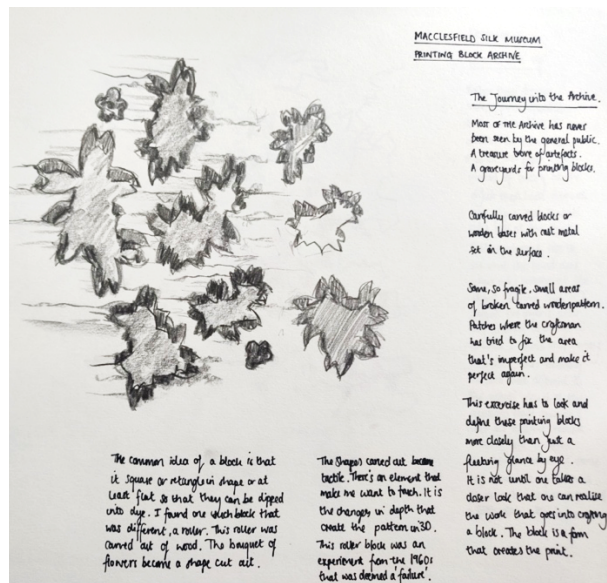 MACCLESFIELD SILK MUSEUM
PRINTING BLOCK ARCHIVE
The Journey into the Archive.
Most of the Archive has never
been seen by the general public.
A treasure trove of artefacts.
A graveyards for printing blocks.
Carefully carved blocks or
wooden bases with cast metal
set in the surface.
Some, so fragile. small areas
of broken carved wooden pattern.
Patches where the craftman
has tried to fix the area
that's imperfect and make it
perfect again.
This exercise has to look and
define these printing blocks
more closely than just a
fleeting glance by eye.
It is not until one takes a
closer look that one can realise
the work that goes into crafting
a block. The block is a form
that creates the print.
The common idea of a block is that
it square or rectangle in shape or at
least flat so that they can be dipped
into dye. I found one block that
was different, a roller. This roller was
carved out of wood. The bouquet of
flowers become a shape cut out.
The shapes carved out become
tactile. There's an element that
make me want to touch. It is
the changes in depth that
create the pattern in 3D.
This roller block was an
experiment from the 1960s
that was deemed a 'failure'.